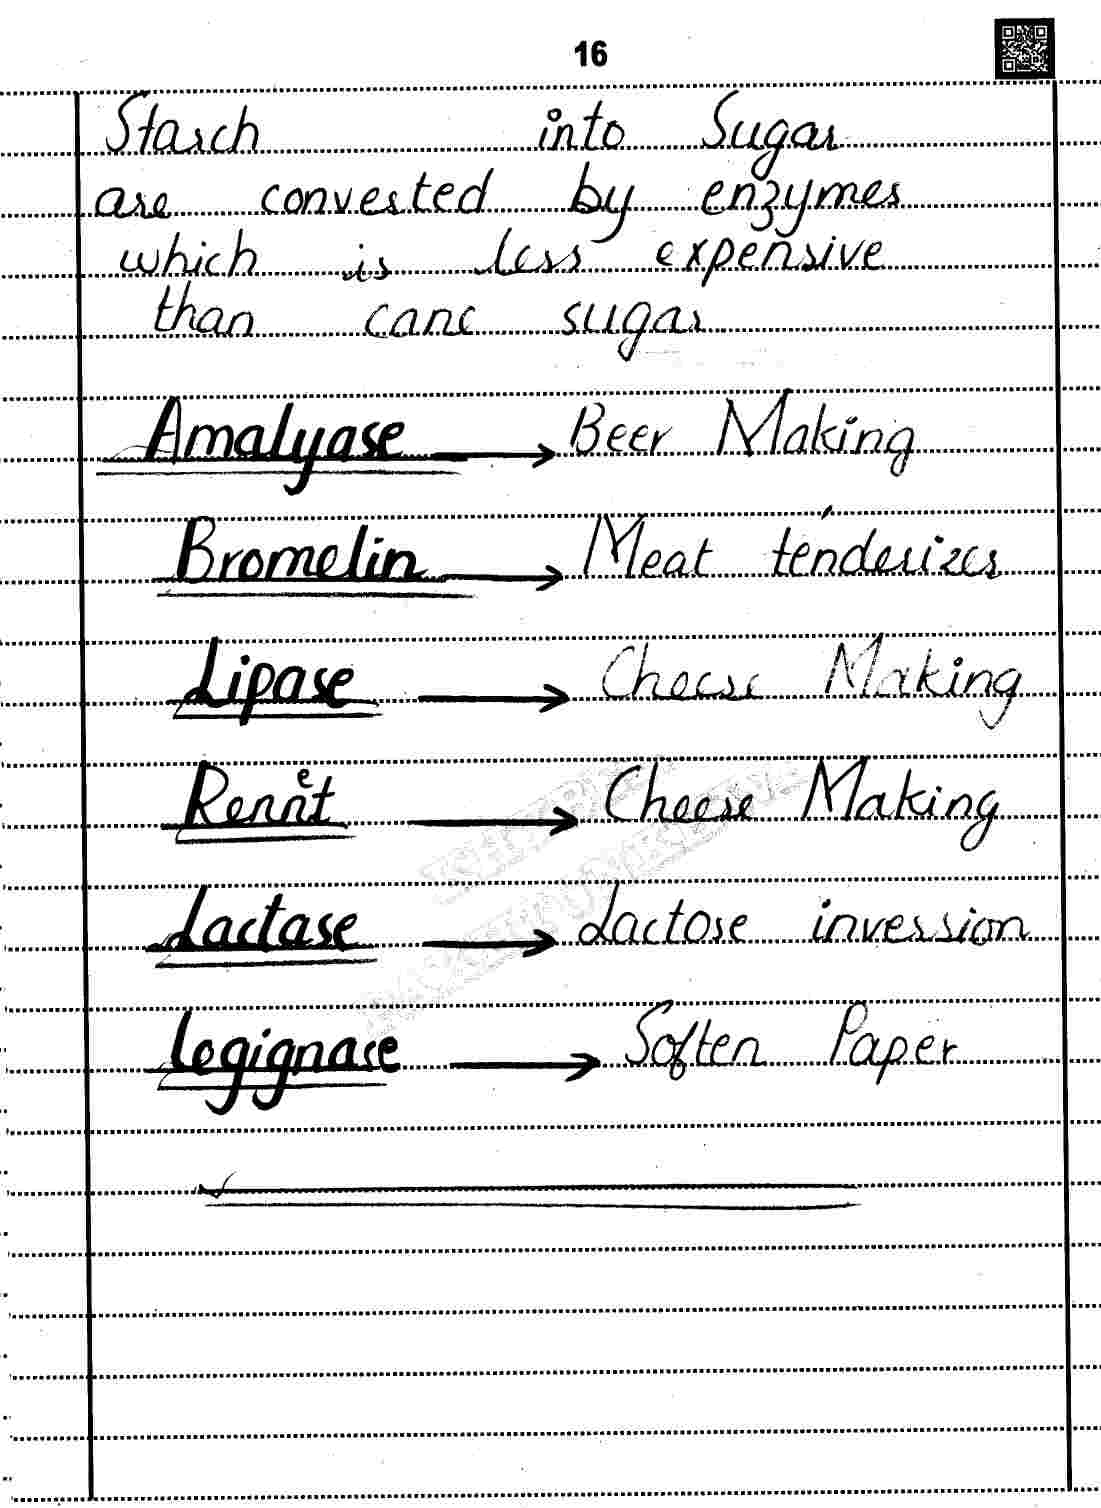 16
Starch into Sugar
are converted by enzymes
which is less expensive
than cane sugar
Amalyase → Beer Making
Bromelin → Meat tenderizer
Lipase → Cheese Making
Rennet → Cheese Making
Lactase → Lactose inversion
Legignase → Soften Paper